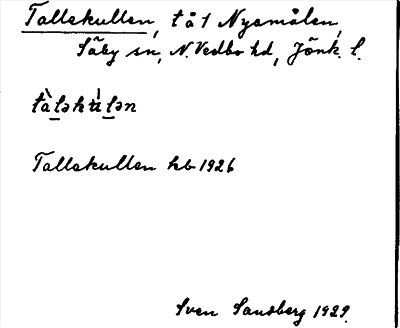 Tallekullen, t å 1 Nyamålen,
Säby sn, N. Vedbo hd, Jönk. l.
tàləkúlən
Tallekullen hb 1926
Sven Sandberg 1929.